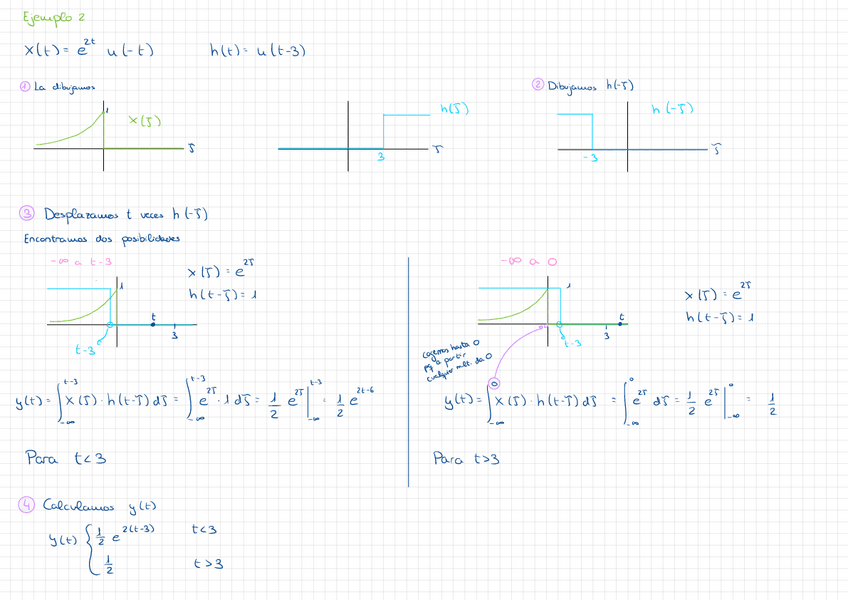 Ejemplo 2
x(t) = e^{2t} u(-t)   h(t) = u(t-3)
① La dibujamos
1
x(τ)
τ
h(τ)
3
τ
② Dibujamos h(-τ)
h(-τ)
-3
τ
③ Desplazamos t veces h(-τ)
Encontramos dos posibilidades
-∞ a t-3
x(τ) = e^{2τ}
h(t-τ) = 1
1
t
3
t-3
y(t) = ∫_{-∞}^{t-3} x(τ) · h(t-τ) dτ = ∫_{-∞}^{t-3} e^{2τ} · 1 dτ = 1/2 e^{2τ} |_{-∞}^{t-3} = 1/2 e^{2t-6}
Para t<3
-∞ a 0
x(τ) = e^{2τ}
h(t-τ) = 1
1
t
3
t-3
cogemos hasta 0
pq a partir
cualquier mult. da 0
y(t) = ∫_{-∞}^{0} x(τ) · h(t-τ) dτ = ∫_{-∞}^{0} e^{2τ} dτ = 1/2 e^{2τ} |_{-∞}^{0} = 1/2
Para t>3
④ Calculamos y(t)
y(t) { 1/2 e^{2(t-3)}   t<3
1/2   t>3